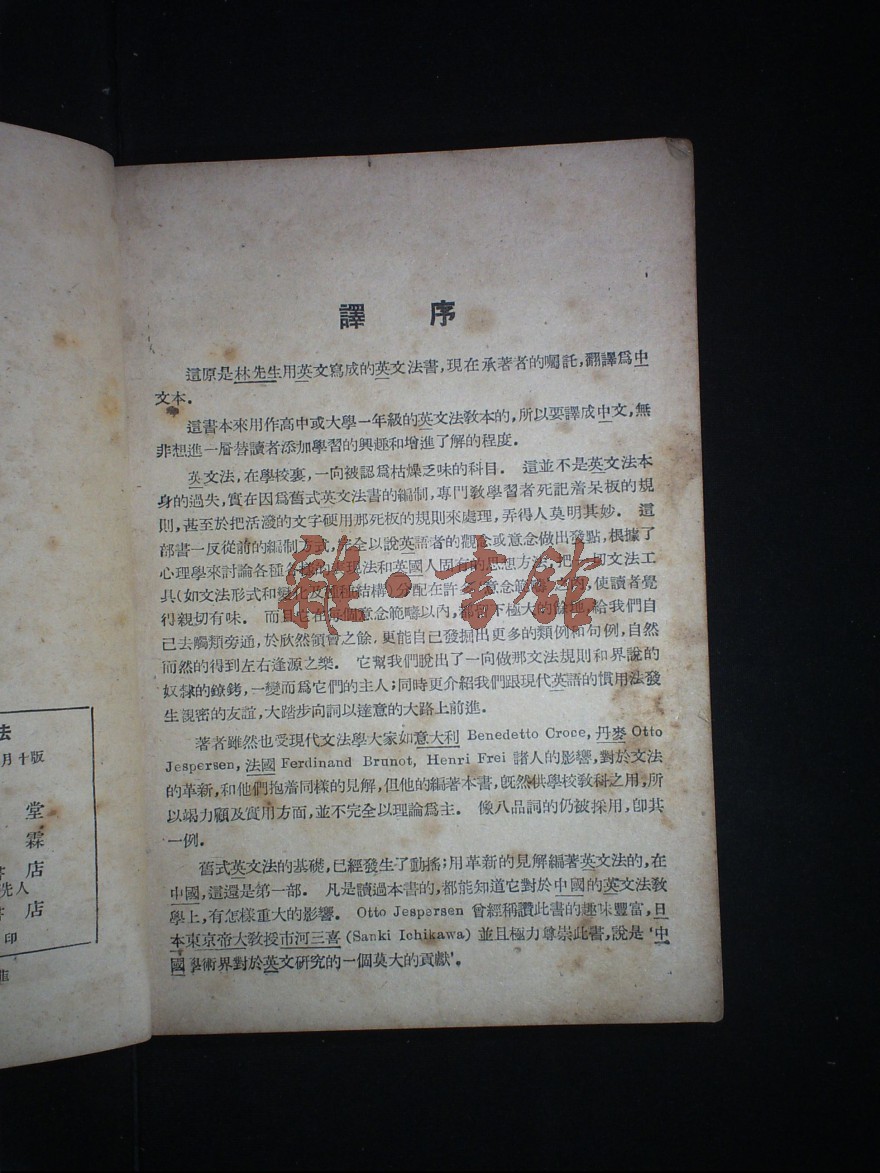 譯 序
這原是林先生用英文寫成的英文法書,現在承著者的囑託,翻譯爲中
文本.
這書本來用作高中或大學一年級的英文法教本的,所以要譯成中文,無
非想進一層替讀者添加學習的興趣和增進了解的程度.
英文法,在學校裏,一向被認爲枯燥乏味的科目. 這並不是英文法本
身的過失,實在因爲舊式英文法書的編制,專門教學習者死記着呆板的規
則,甚至於把活潑的文字硬用那死板的規則來處理,弄得人莫明其妙. 這
部書一反從前的編制方式,完全以說英語者的觀念或意念做出發點,根據了
心理學來討論各種各樣的表現法和英國人固有的思想方法,把一切文法工
具(如文法形式和變化及種種結構)分配在許多意念範疇之內,使讀者覺
得親切有味. 而且它在每個意念範疇以內,都留下極大的餘地,給我們自
己去觸類旁通,於欣然領會之餘,更能自己發掘出更多的類例和句例,自然
而然的得到左右逢源之樂. 它幫我們脫出了一向做那文法規則和界說的
奴隸的鐐銬,一變而爲它們的主人;同時更介紹我們跟現代英語的慣用法發
生親密的友誼,大踏步向詞以達意的大路上前進.
著者雖然也受現代文法學大家如意大利 Benedetto Croce, 丹麥 Otto
Jespersen, 法國 Ferdinand Brunot, Henri Frei 諸人的影響,對於文法
的革新,和他們抱着同樣的見解,但他的編著本書,既然供學校教科之用,所
以竭力顧及實用方面,並不完全以理論爲主. 像八品詞的仍被採用,卽其
一例.
舊式英文法的基礎,已經發生了動搖;用革新的見解編著英文法的,在
中國,這還是第一部. 凡是讀過本書的,都能知道它對於中國的英文法教
學上,有怎樣重大的影響. Otto Jespersen 曾經稱讚此書的趣味豐富,日
本東京帝大教授市河三喜 (Sanki Ichikawa) 並且極力尊崇此書,說是 '中
國學術界對於英文研究的一個莫大的貢獻'.
法
月十版
堂
霖
店
先人
店
印
雜·書館